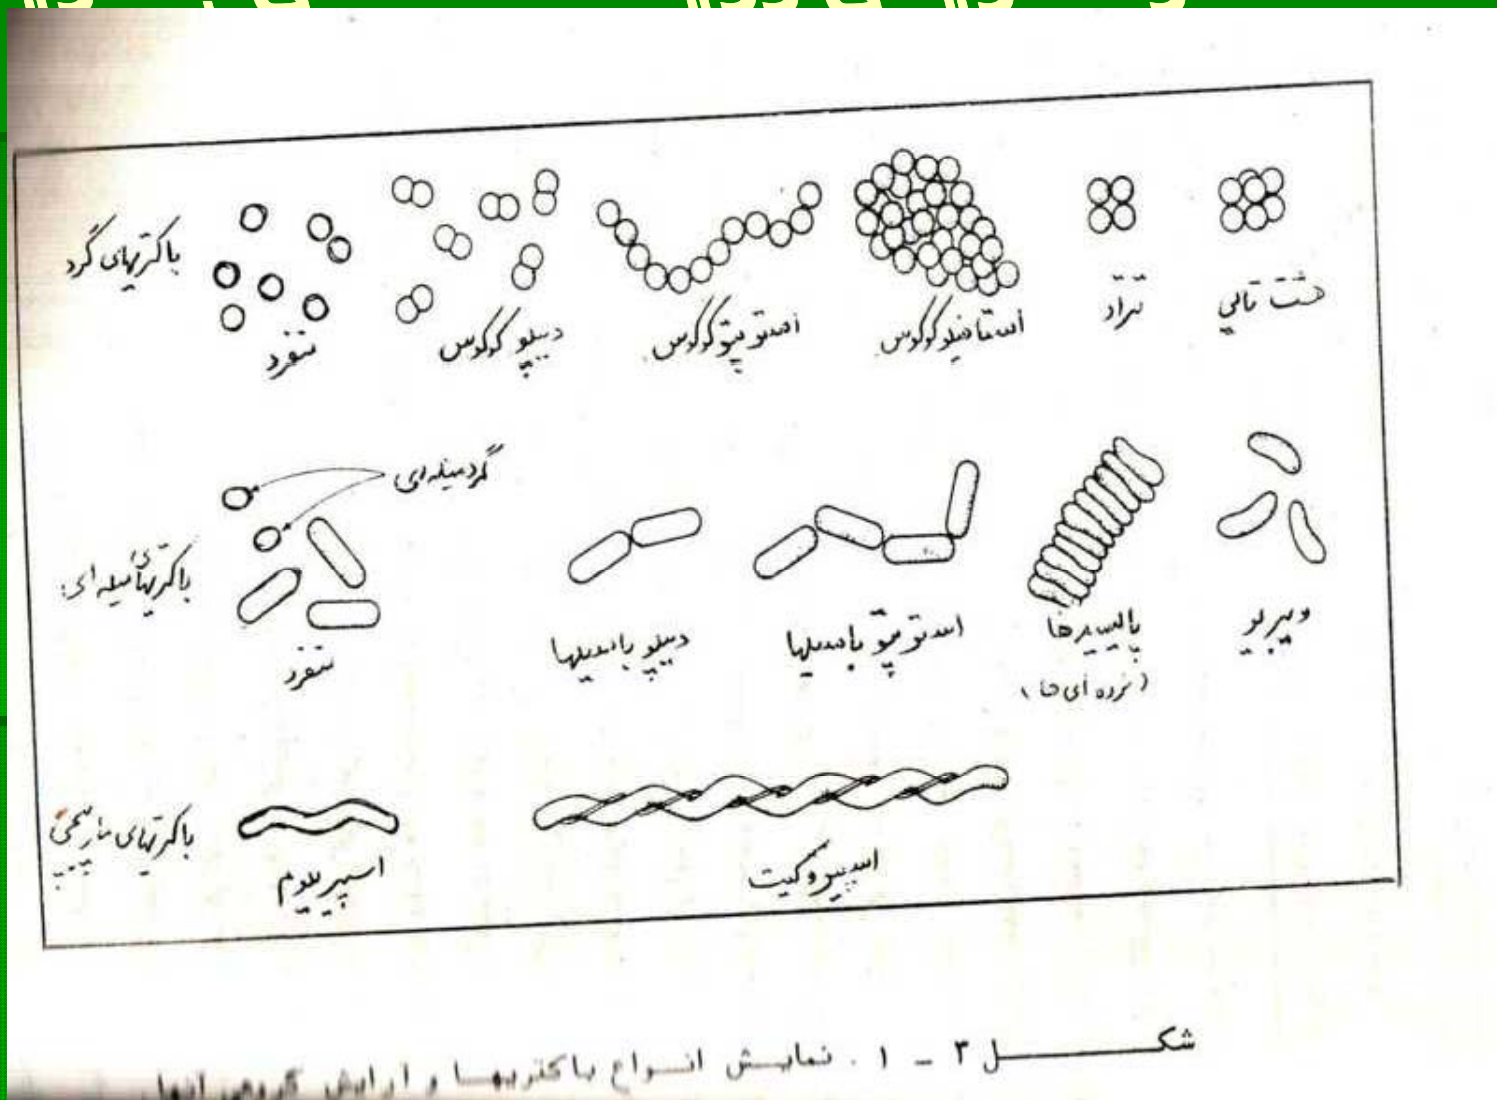 باکتریهای گرد
منفرد
دیپلوکوکوس
استرپتوکوکوس
استافیلوکوکوس
تتراد
هشت تائی
باکتریهای میله‌ای:
گردمیله‌ای
منفرد
دیپلو باسیلها
استرپتو باسیلها
پالیسیدها
(نرده ای ها)
ویبریو
باکتریهای مارپیچی
اسپیریلیوم
اسپیروکیت
شکل ۳ - ۱ . نمایش انواع باکتریها و آرایش گروهی آنها.